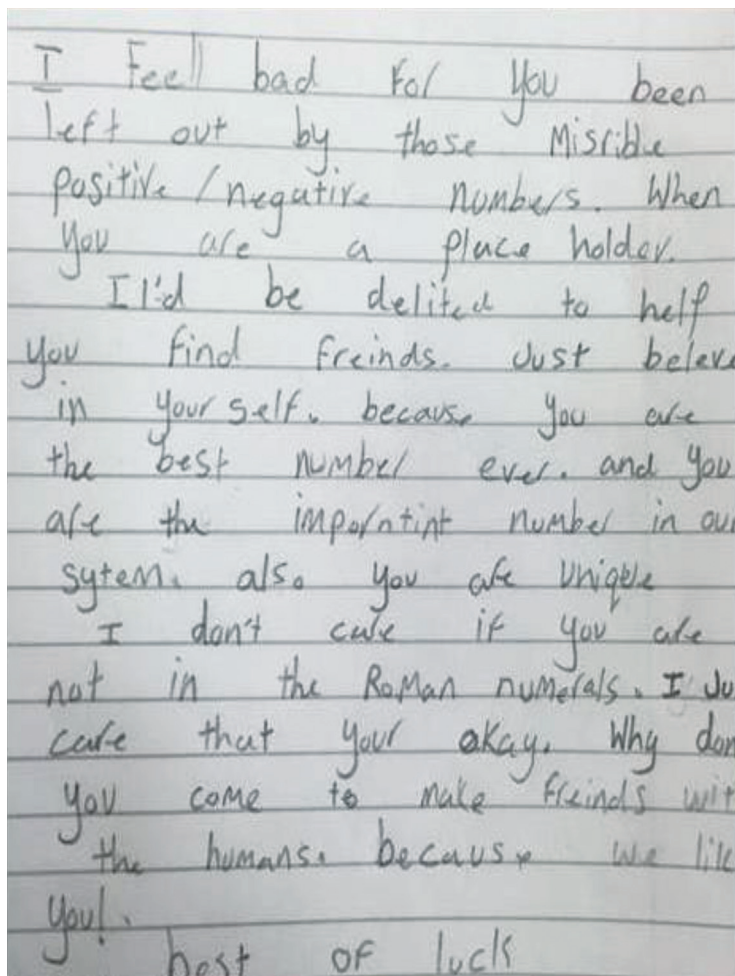 I Feel bad For you been
left out by those Misrible
positive/negative numbers. When
you are a place holder.
I I'd be delited to help
you find freinds. Just beleve
in your self. because you are
the best number ever. and you
are the imporntint number in our
sytem. also you are unique
I don't care if you are
not in the RoMan numerals. I Ju
care that your okay. Why don
you come to make freinds wit
the humans. because we lik
you!.
best of luck